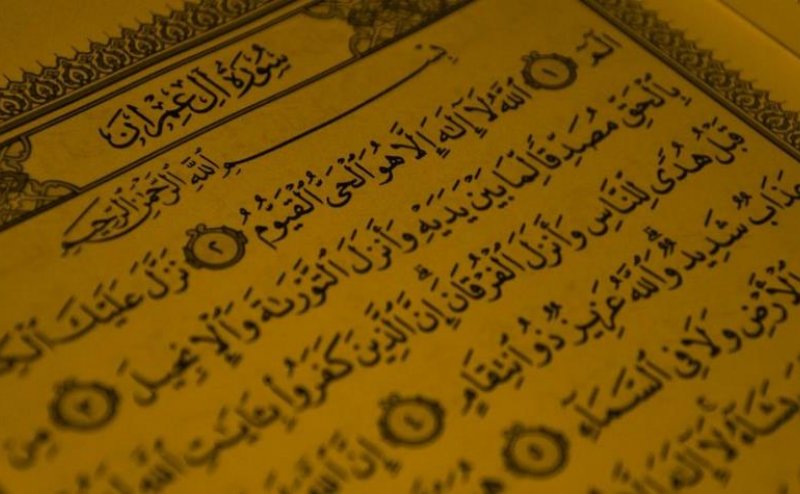 سُورَةُ آلِ عِمْرَانَ
بِسْمِ ٱللَّهِ ٱلرَّحْمَٰنِ ٱلرَّحِيمِ
الٓمٓ ١ ٱللَّهُ لَآ إِلَٰهَ إِلَّا هُوَ ٱلْحَىُّ ٱلْقَيُّومُ ٢ نَزَّلَ عَلَيْكَ
بِٱلْحَقِّ مُصَدِّقًا لِّمَا بَيْنَ يَدَيْهِ وَأَنزَلَ ٱلتَّوْرَىٰةَ وَٱلْإِنجِيلَ ٣ مِن
قَبْلُ هُدًى لِّلنَّاسِ وَأَنزَلَ ٱلْفُرْقَانَۗ إِنَّ ٱلَّذِينَ كَفَرُوا۟ بِـَٔايَٰتِ ٱللَّهِ
عَذَابٌ شَدِيدٌۗ وَٱللَّهُ عَزِيزٌ ذُو ٱنتِقَامٍ ٤ إِنَّ ٱللَّهَ
ٱلْأَرْضِ وَلَا فِى ٱلسَّمَآءِ ٥
يَشَآءُۚ لَآ إِلَٰهَ إِلَّا